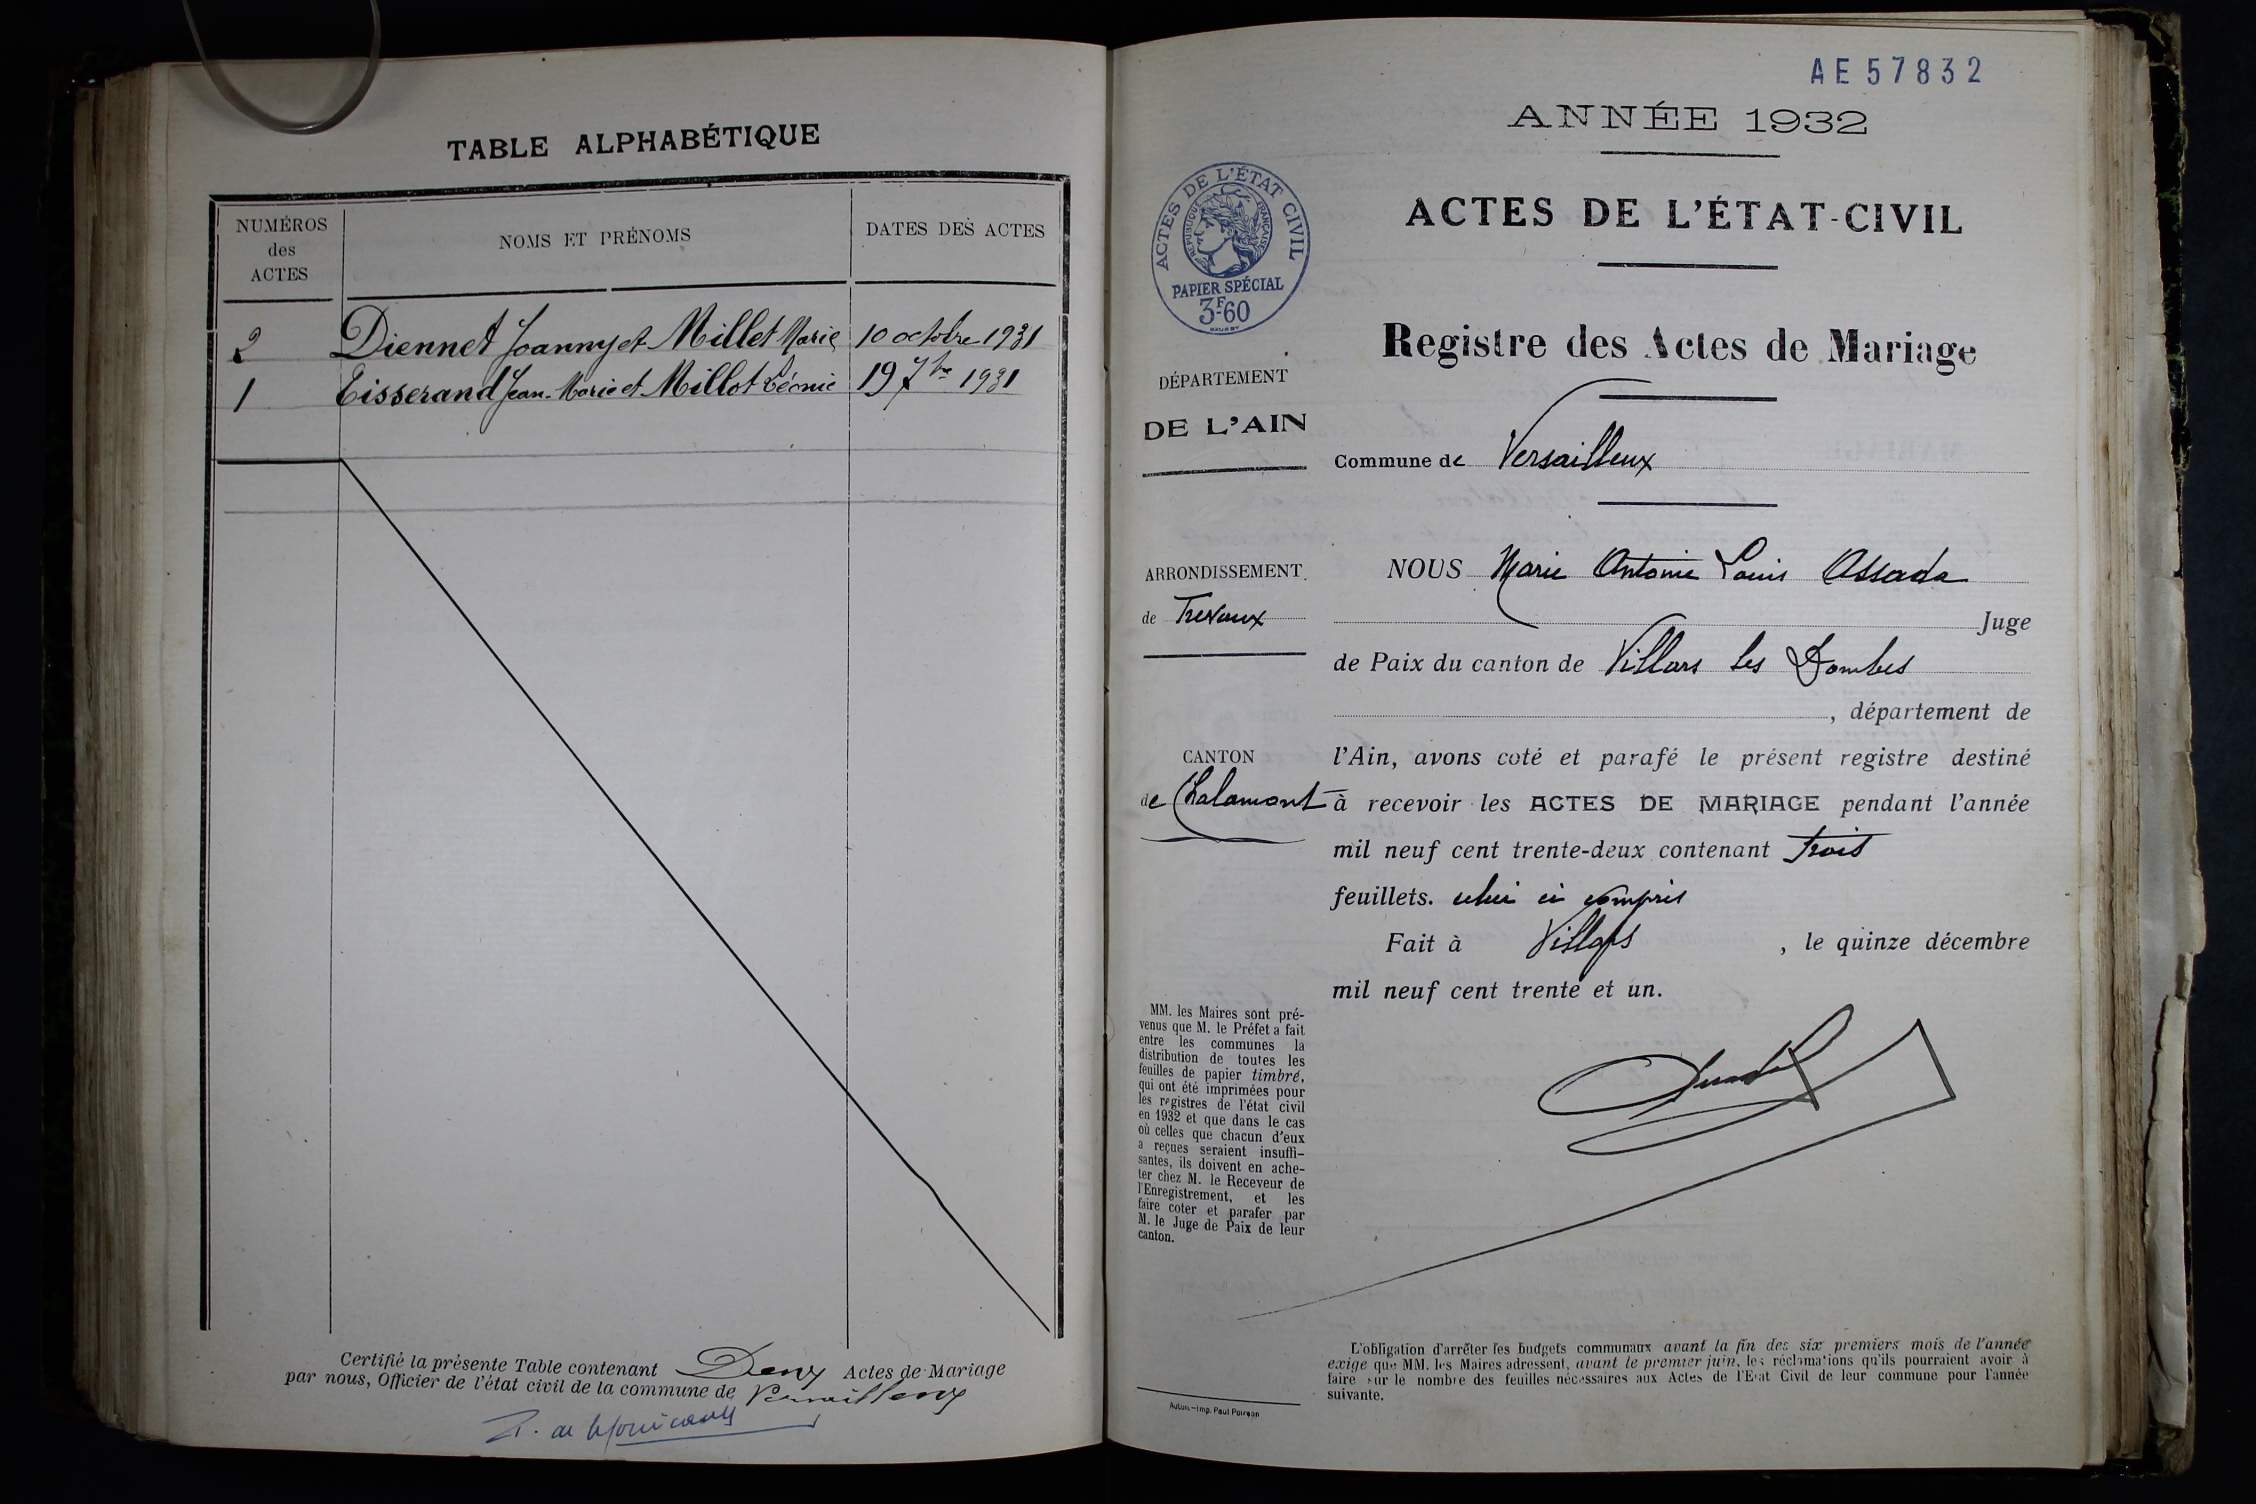 TABLE ALPHABÉTIQUE
NUMÉROS
des
ACTES
NOMS ET PRÉNOMS
DATES DES ACTES
2 Diennet Joanny et Millet Marie 10 octobre 1931
1 Tisserand Jean-Marie et Millot Léonie 19 7bre 1931
Certifié la présente Table contenant Deux Actes de Mariage
par nous, Officier de l'état civil de la commune de Versailleux
AE57832
ANNÉE 1932
ACTES DE L'ÉTAT CIVIL
RÉPUBLIQUE FRANÇAISE
PAPIER SPÉCIAL
3F60
ACTES DE L'ÉTAT-CIVIL
Registre des Actes de Mariage
DÉPARTEMENT
DE L'AIN
Commune de Versailleux
ARRONDISSEMENT
de Trévoux
CANTON
de Chalamont
NOUS Marie Antoine Louis Assada
Juge
de Paix du canton de Villars les Dombes
, département de
l'Ain, avons coté et parafé le présent registre destiné
à recevoir les ACTES DE MARIAGE pendant l'année
mil neuf cent trente-deux contenant trois
feuillets. celui ci compris
Fait à Villars , le quinze décembre
mil neuf cent trente et un.
MM. les Maires sont pré-
venus que M. le Préfet a fait
entre les communes la
distribution de toutes les
feuilles de papier timbré,
qui ont été imprimées pour
les registres de l'état civil
en 1932 et que dans le cas
où celles que chacun d'eux
a reçues seraient insuffi-
santes, ils doivent en ache-
ter chez M. le Receveur de
l'Enregistrement, et les
faire coter et parafer par
M. le Juge de Paix de leur
canton.
L'obligation d'arrêter les budgets communaux avant la fin des six premiers mois de l'année
exige que MM. les Maires adressent, avant le premier juin, les réclamations qu'ils pourraient avoir à
faire sur le nombre des feuilles nécessaires aux Actes de l'Etat Civil de leur commune pour l'année
suivante.
Autun.—Imp. Paul Poirson